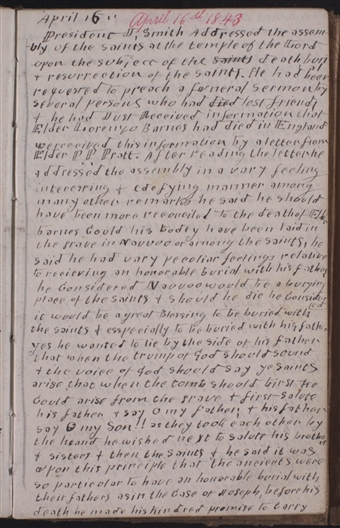 April 16th April 16th 1843
President J. Smith Addressed the assem-
bly of the saints at the temple of the Lord
upon the subject of the saints death buri
+ resurrection of the saints. He had been
requested to preach a funeral sermon by
several persons who had died lost friends
& he had Just Received information that
Elder Lorenzo Barnes had died in England
we received this information by a letter from
Elder P P Pratt. After reading the letter he
addressed the assembly in a vary feeling
interesting & edefying manner among
many other remarks he said he should
have been more reconciled to the death of Eld
Barnes Could his Body have been laid in
the grave in Nauvoo or among the saints, he
said he had vary peculiar feelings relative
to recieving an honorable burial with his fathers
he Considered Nauvoo would be a burying
place of the saints & should he die he Consider
ed
it would be a great Blessing to be buried with
the saints & esspecially to be buried with his father
yes he wanted to lie by the side of his father
that when the trump of God should sound
& the voice of God should say ye Saints
arise that when the tomb should birst he
Could arise from the grave & first salute
his father & say O my father, & his father
say O my Son!! as they took each other by
the hand he wished next to salute his brothers
& sisters & then the Saints & he said it was
upon this principle that the ancients were
so particular to have an honorable burial with
their fathers as in the Case of Joseph, before his
death he made his kindred promise to Carry